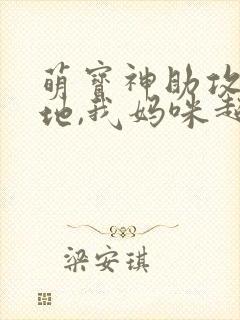 萌宝神助攻
地,我妈咪超
梁安琪